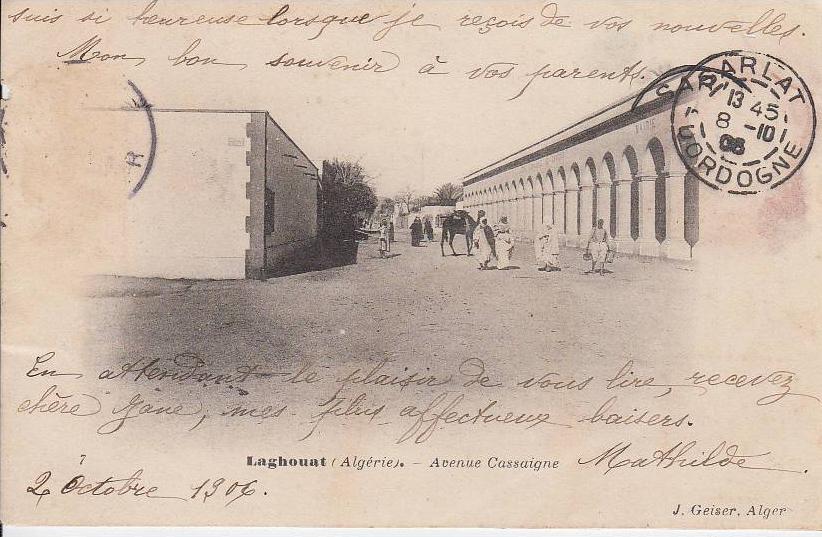 suis si heureuse lorsque je reçois de vos nouvelles.
Mon bon souvenir à vos parents.
SARLAT
13 45
8 -10
06
DORDOGNE
MAIRIE
En attendant le plaisir de vous lire, recevez
chère Jane, mes plus affectueux baisers.
7
Laghouat (Algérie). – Avenue Cassaigne
Mathilde
2 Octobre 1906.
J. Geiser, Alger